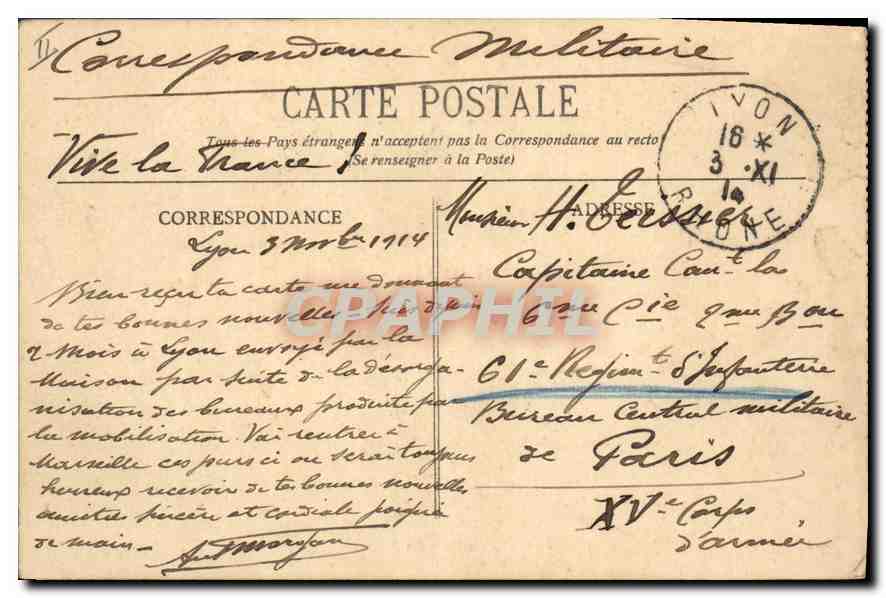 II
Correspondance Militaire
CARTE POSTALE
Tous les Pays étrangers n'acceptent pas la Correspondance au recto
(Se renseigner à la Poste)
Vive la France !
LYON
16 *
3 XI
14
RHONE
CORRESPONDANCE
ADRESSE
Lyon 3 Novbre 1914
Bien reçu ta carte me donnant
de tes bonnes nouvelles
2 mois à Lyon envoyé par la
Maison par suite de la désorga-
nisation des bureaux produite par
la mobilisation. Vai rentrer à
Marseille ces jours ci ou serai toujours
heureux recevoir de tes bonnes nouvelles
amitié sincère et cordiale poignée
de main -
Monsieur H.
Capitaine Comt la
6me Cie 2me Bon
61e Regimt d'Infanterie
Bureau Central militaire
de Paris
XVe Corps
d'armée
CPAPHIL